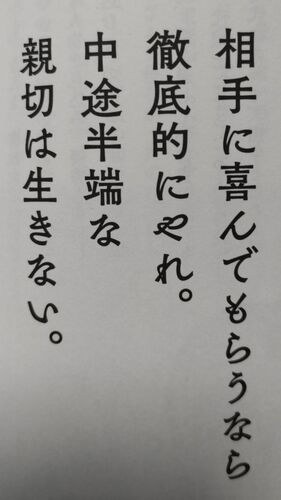 相手に喜んでもらうなら
徹底的にやれ。
中途半端な
親切は生きない。